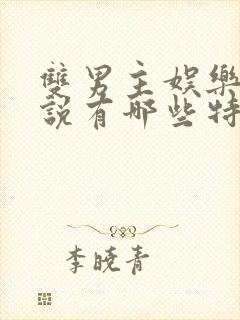 雙男主娛樂
說有哪些特
李曉青